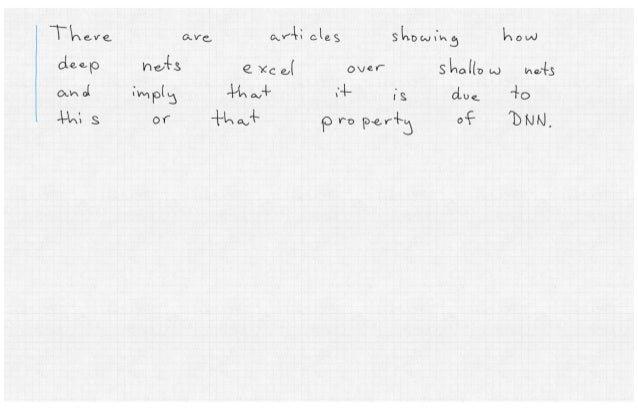 There are articles showing how
deep nets excel over shallow nets
and imply that it is due to
this or that property of DNN.